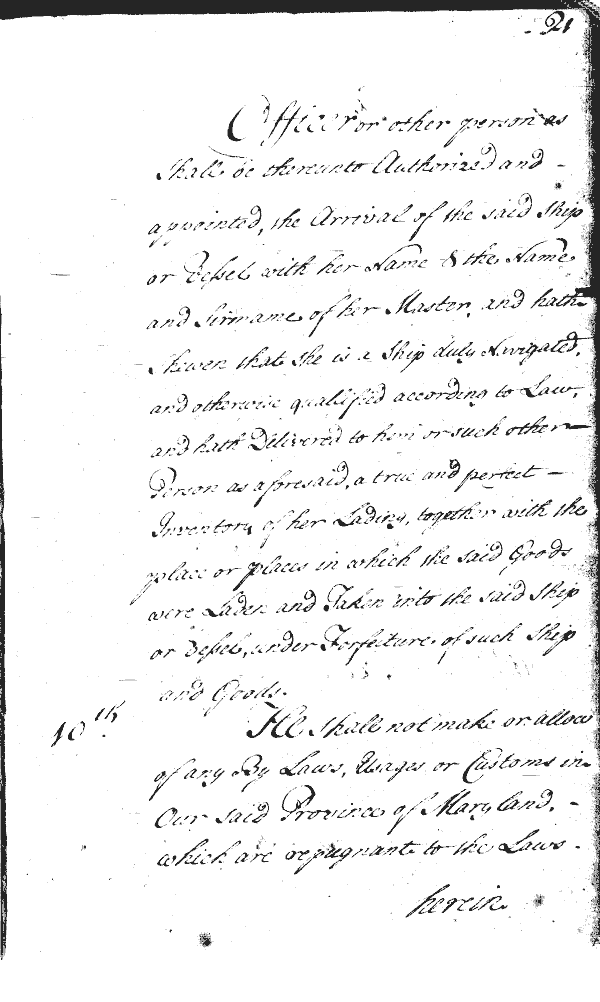 21
Officer or other person as
Shall be thereunto Authorized and -
appointed, the Arrival of the said Ship
or Vessel with her Name & the Name
and Sirname of her Master, and hath
Shewen that she is a Ship duly Navigated,
and otherwise qualified according to Law,
and hath Delivered to him or such other
Person as aforesaid, a true and perfect -
Inventory of her Lading, together with the
place or places in which the said Goods
were Laden and Taken into the said Ship
or Vessel, under Forfeiture of such Ship
and Goods.
10th He shall not make or allow
of any By Laws, Usages or Customs in
Our said Province of Maryland, -
which are repugnant to the Laws -
herein